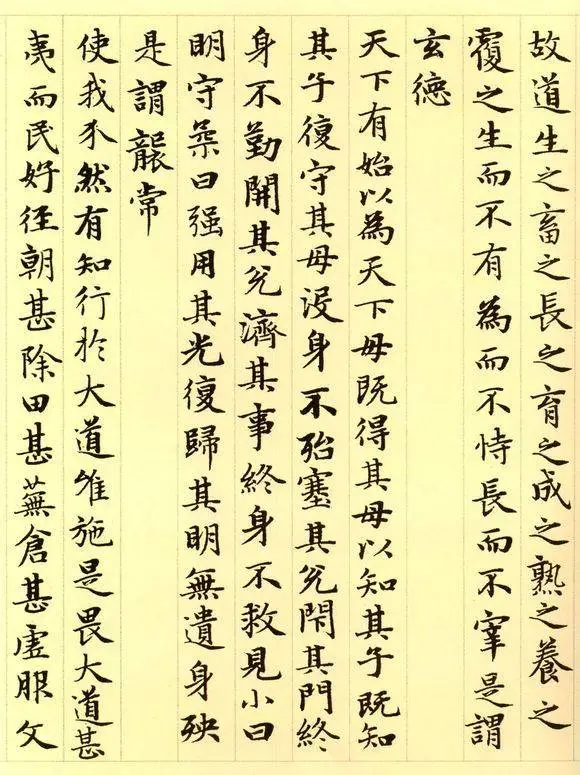 故道生之畜之長之育之成之熟之養之
覆之生而不有為而不恃長而不宰是謂
玄德
天下有始以為天下母既得其母以知其子既知
其子復守其母沒身不殆塞其兌閇其門終
身不勤開其兌濟其事終身不救見小曰
明守柔曰强用其光復歸其明無遺身殃
是謂襲常
使我介然有知行於大道唯施是畏大道甚
夷而民好徑朝甚除田甚蕪倉甚虛服文